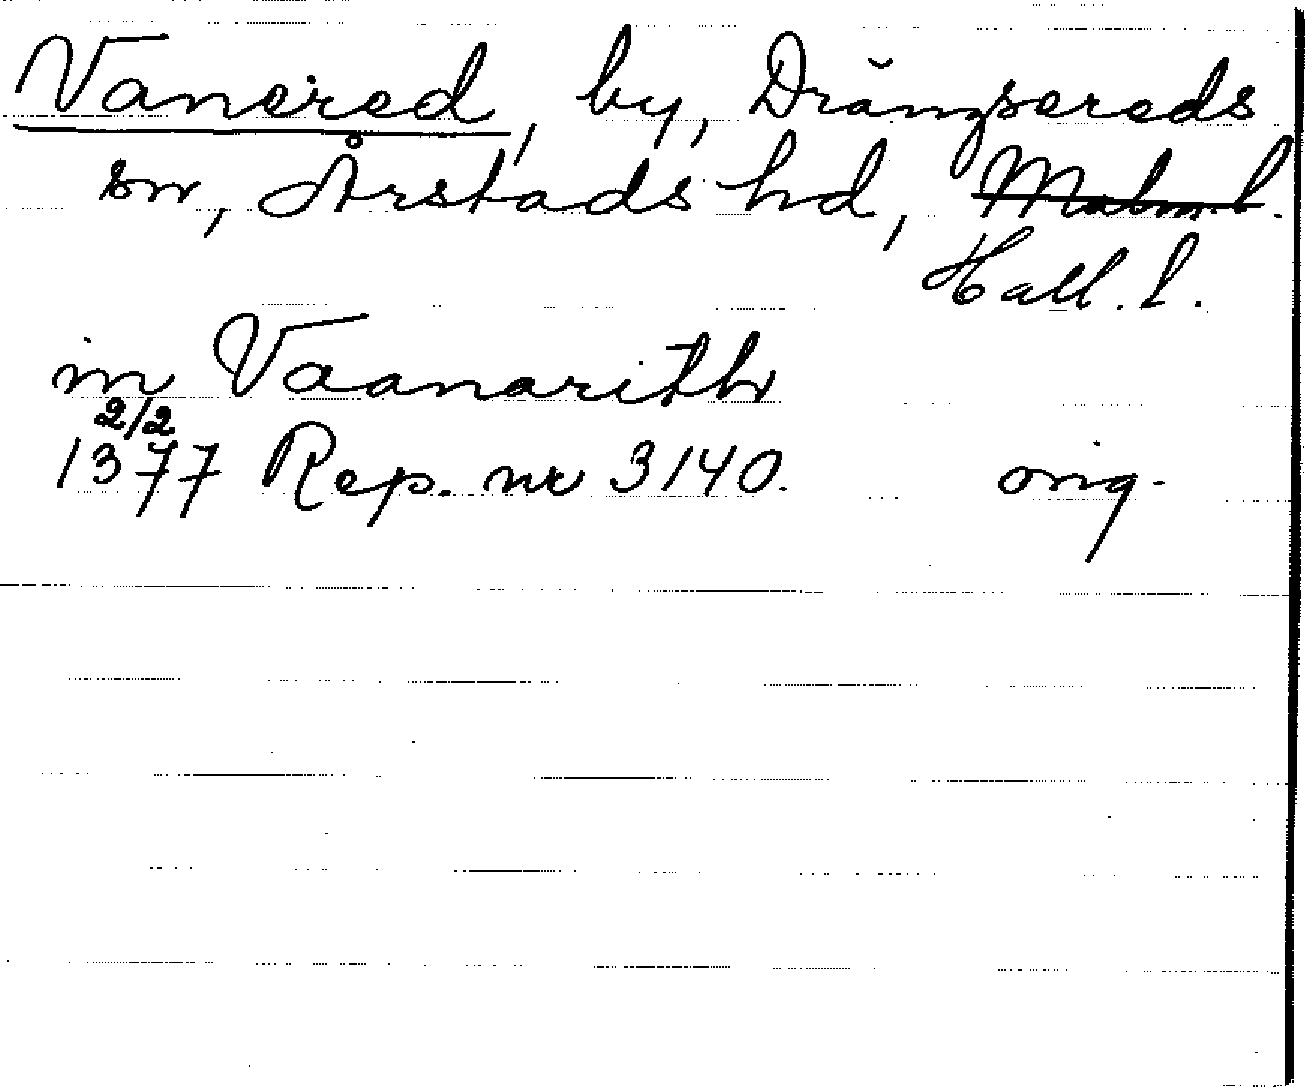 Vanered, by, Drängsereds
sn, Årstads hd, Malm. l.
Hall. l.
in Vaanarith
2/2
1377 Rep. nr 3140. orig.